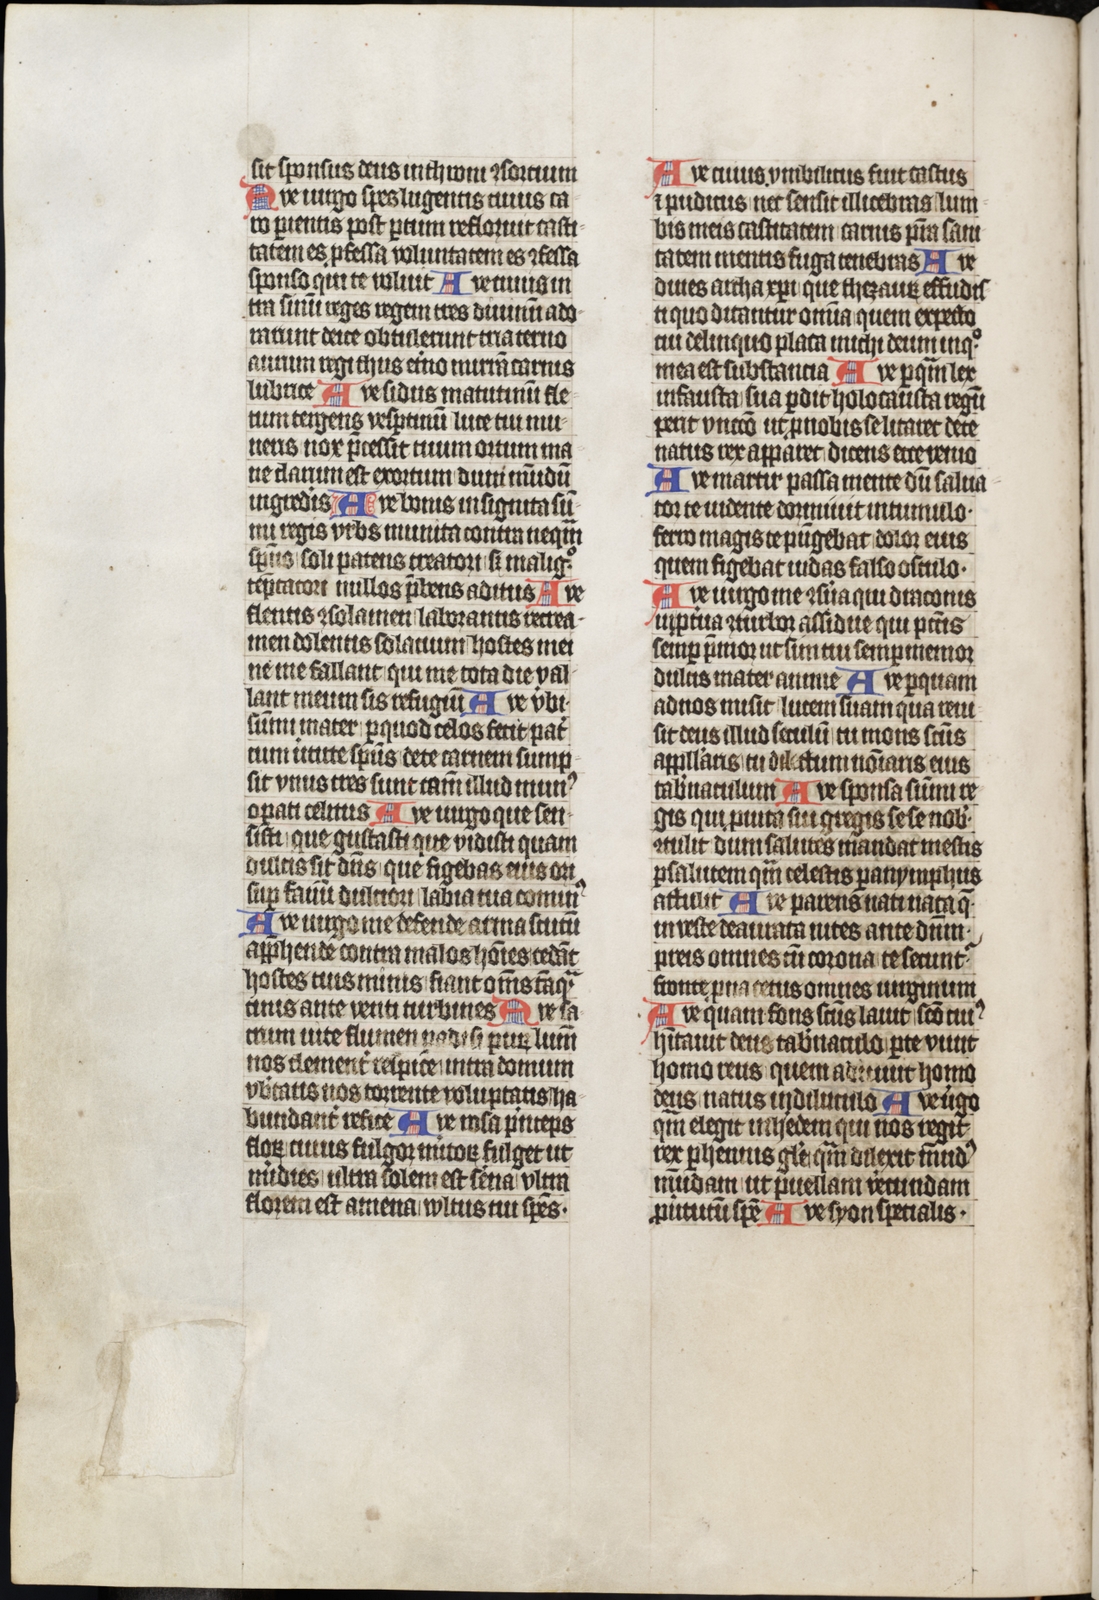 sit sponsus deus in throni ꝯsortium
Aue uirgo spes lugentis cuius ca
ro parientis post ꝑtum refloruit casti
tatem es ꝓfessa voluntatem es ꝯfessa
sponso qui te voluit Aue cuius in
tra sinū reges regem tres diuinū ado
rarunt deite obtulerunt tria terno
aurum regi thus trino mirrā carnis
lubrice Aue sidus matutinū fle
tum tergens vesꝑtinū luce tui mu
neris nox p̄cessit tuum ortum ma
ne clarum est exortum dum mūdū
ingredis Aue bonis insignita sū
mi regis vrbs munita contra neqͣm
sp̄us soli patens creatori sꝫ malig°
tēptatori nullos p̄bens aditus Aue
flentis ꝯsolamen laborantis recrea
men dolentis solacium hostes mei
ne me fallant qui me tota die val
lant meum sis refugiū Aue vbi
sūmi mater ꝑ quod celos fecit pat̄
cum v̓tute sp̄us de te carnem sump
sit vnus tres sunt tam̄ illud mun
oꝑati celitus Aue uirgo que sen
sisti que gustasti que vidisti quam
dulcis sit dn̄s que figebas eius ori
suꝑ fauū dulciori labia tua comun
Aue uirgo me defende arma scutū
app̄hende contra malos hoīes cedāt
hostes tuis minis fiant om̄s tāqͣ
cinis ante venti turbines Aue sa
crum uite flumen padisi puꝝ lum̄
nos clement̓ respice intra domum
vb̓tatis nos torrente voluptatis ha
bundant̓ refice Aue rosa pͥnceps
floꝝ cuius fulgor nitoꝝ fulget ut
mͥdies ultra solem est sēna vltra
florem est amena vultus tui spēs
Aue cuius vmbilicus fuit castus
ī pudicus nec sensit illecebras lum
bis meis castitatem carnis p̄sta sani
tatem mentis fuga tenebras Aue
diues archa xp̄i que thezauꝝ effudis
ti quo ditantur omīa quem expecto
cui delinquo placa michi deum inq°
mea est substancia Aue ꝑ qͣm lex
infausta sua ꝑdit holocausta regū
perit vnctō ut ꝓ nobis se litaret de te
natus rex apparet dicens ecce venio
Aue martir passa mente dū salua
tor te uidente dormiuit in tumulo
ferro magis te pūgebat dolor eius
quem figebat iudas falso osculo
Aue uirgo me ꝯsͥua qui draconis
vi ꝓterua ꝯturbor assidue qui pctīs
semꝑ p̄mor ut sim tui semꝑ memor
dulcis mater anime Aue ꝑ quam
ad nos misit lucem suam qua reui
sit deus illud seculū tu mons sctūs
appllaris tu dilectum noīaris eius
tab̓naculum Aue sponsa sūmi re
gis qui ꝓ uita sui gregis se se nob̓
ꝯtulit dum salutes mandat mestis
ꝑ salutem qͣm celestis paranymphus
attulit Aue parens nati nata q̄
in veste deaurata nites ante dn̄m
preis omnes cū corona te secunt
fronte ꝓna cetus omnes uirginum
Aue quam fons scūs lauit scō tui
hitauit deus tab̓naculo ꝑ te viuit
homo reus quem adiuuit homo
deus natus in diluculo Aue ūgo
qͣm elegit in hedem qui nos regit
rex ꝑhennis gl̄e qͣm dilexit mūd
mūdam ut puellam vecundam
pͥ uirtutū spē Aue syon specialis